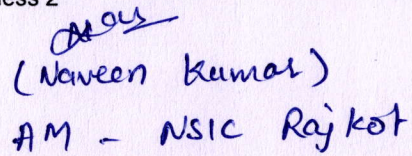 (Naveen Kumar)
AM - NSIC Rajkot